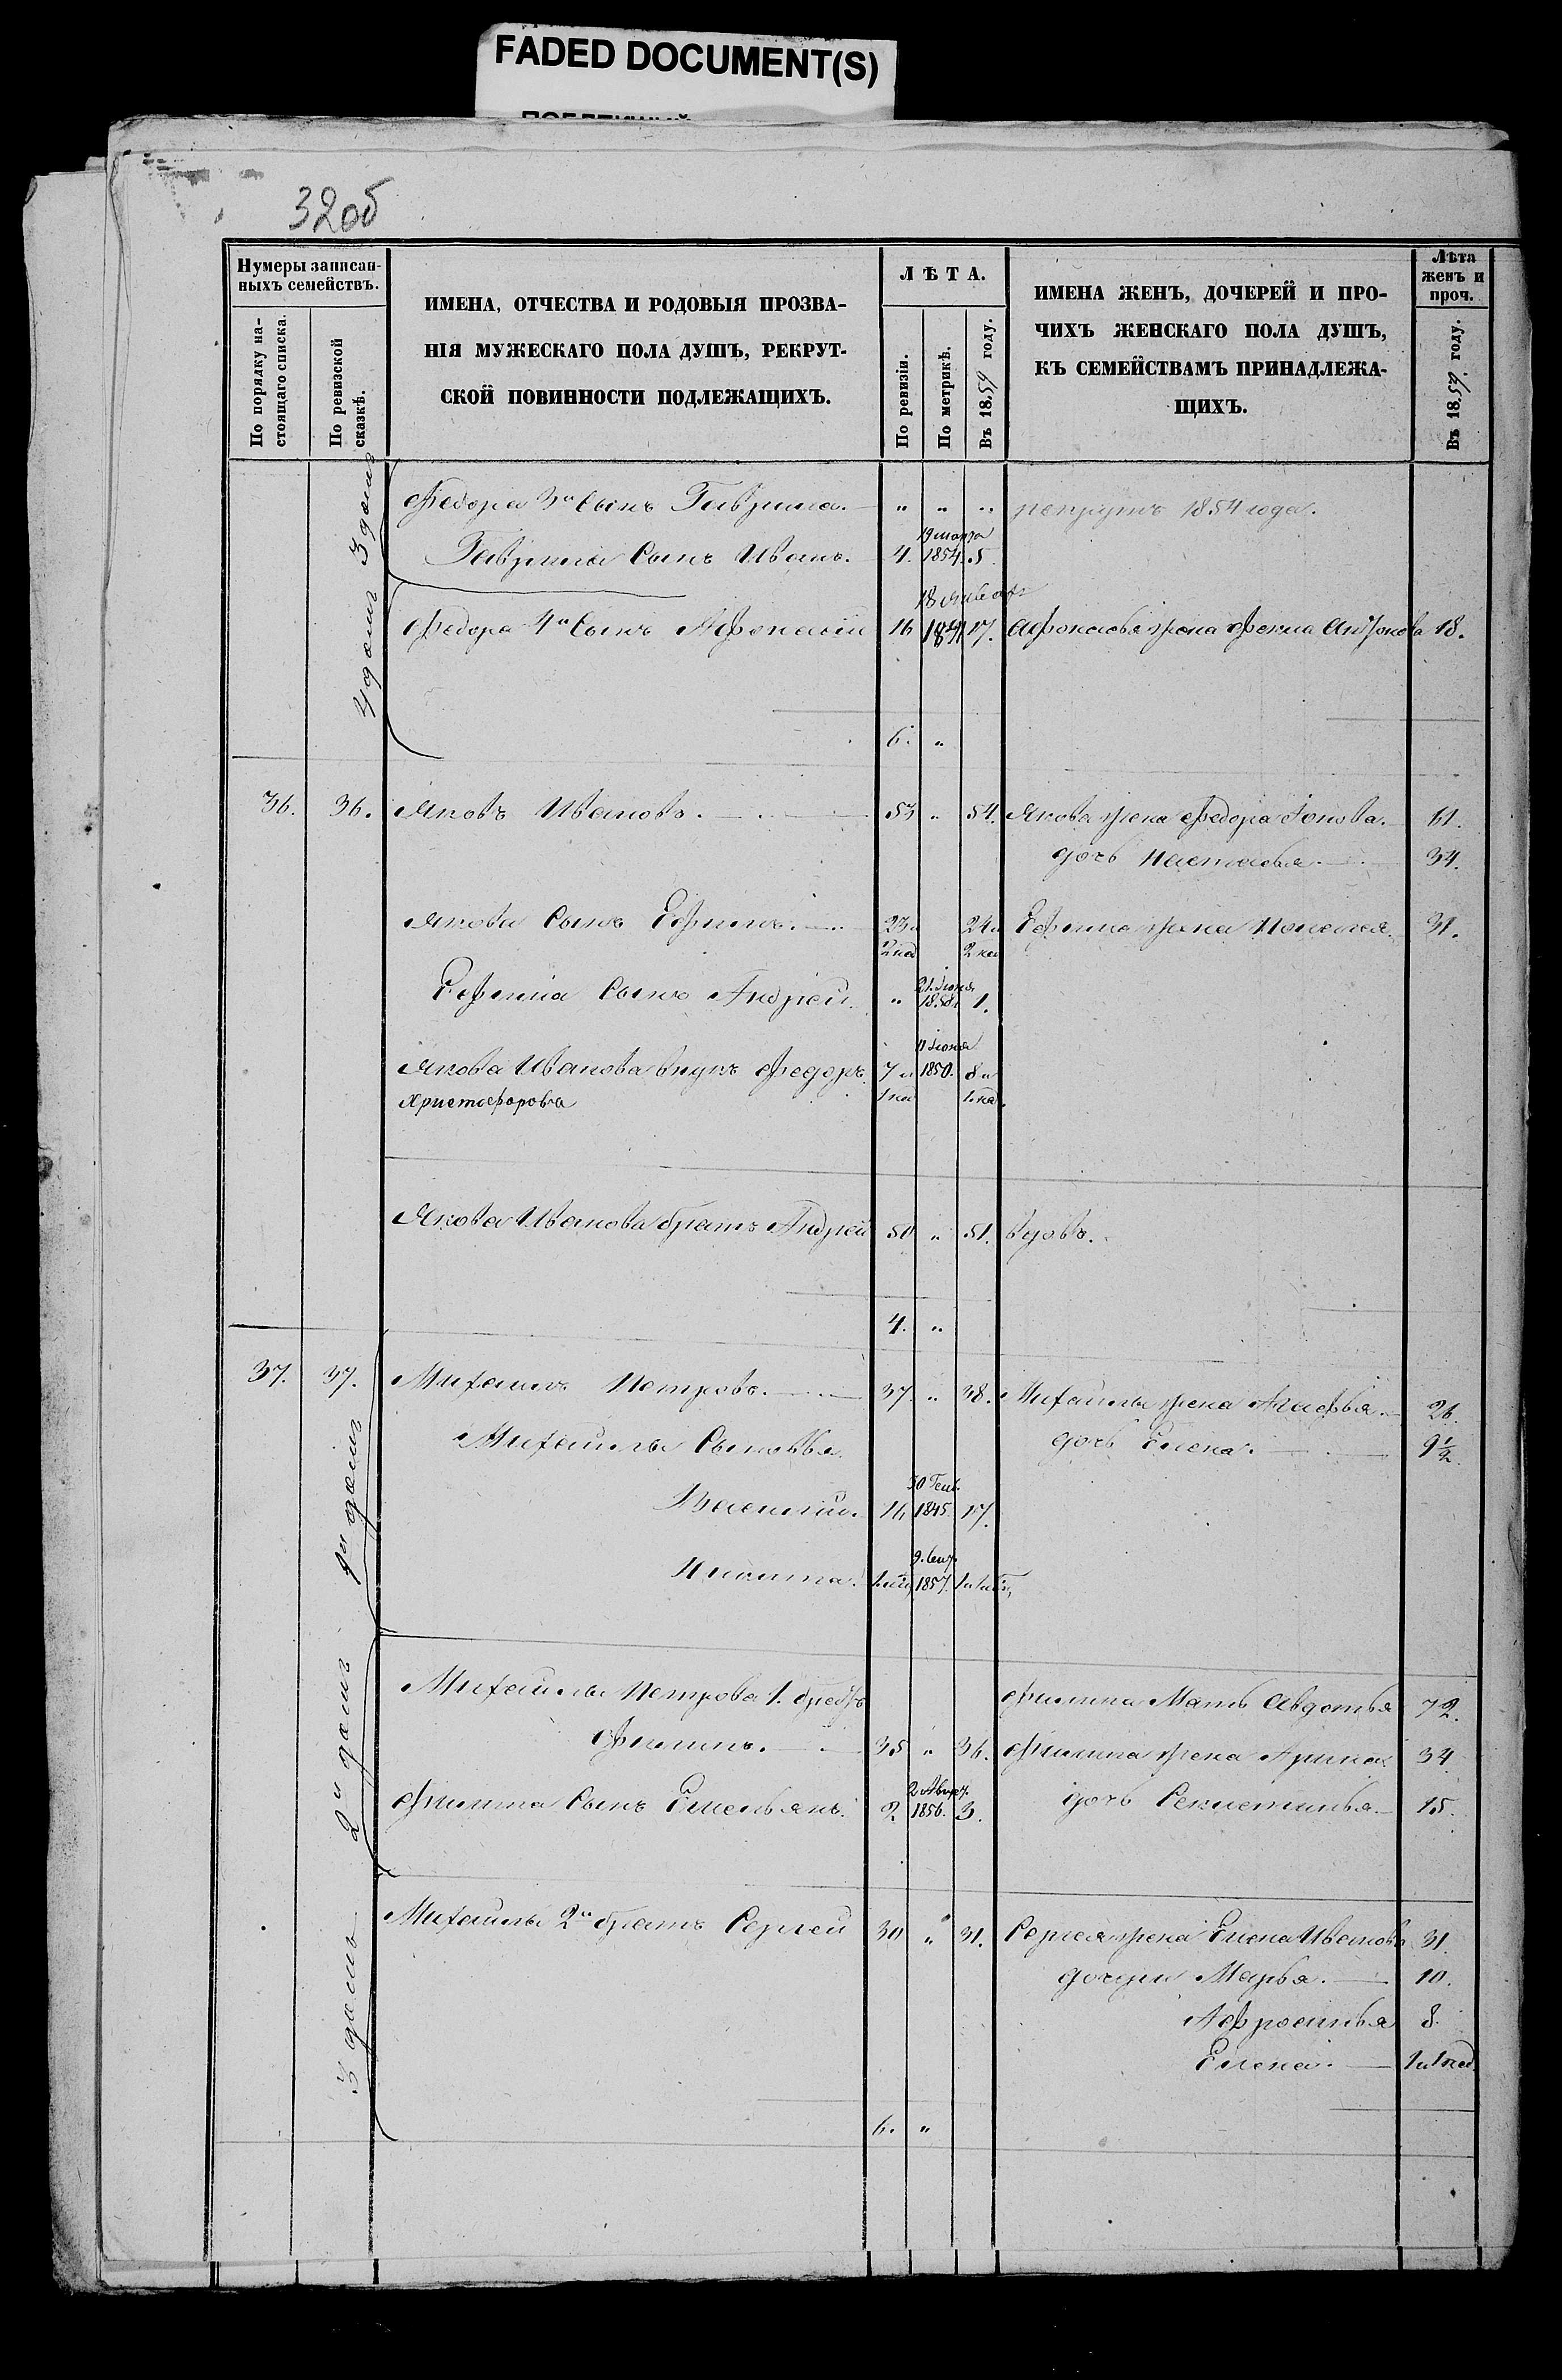 FADED DOCUMENT(S)
32об
Нумеры записан-
ныхъ семействъ.
По порядку на-
стоящаго списка.
По ревизской
сказкѣ.
ИМЕНА, ОТЧЕСТВА И РОДОВЫЯ ПРОЗВА-
НІЯ МУЖЕСКАГО ПОЛА ДУШЪ, РЕКРУТ-
СКОЙ ПОВИННОСТИ ПОДЛЕЖАЩИХЪ.
ЛѢТА.
По ревизіи.
По метрикѣ.
Въ 1859 году.
ИМЕНА ЖЕНЪ, ДОЧЕРЕЙ И ПРО-
ЧИХЪ ЖЕНСКАГО ПОЛА ДУШЪ,
КЪ СЕМЕЙСТВАМЪ ПРИНАДЛЕЖА-
ЩИХЪ.
Лѣта
женъ и
проч.
Въ 1859. году.
3 домъ
Федора 3й Сынъ Гаврила. " " " рекрутъ 1854 года.
19 марта
Гаврила Сынъ Иванъ. 4. 1854. 5.
4 домъ
18 Января
Федора 4й Сынъ Афонасій 16 1841 17. Афонасья жена Фекла Антонова 18.
6. "
36. 36. Яковъ Ивановъ. 53 " 54. Якова жена Федора Іонова. 61.
дочь Настасья. 34.
Якова Сынъ Ефимъ. 23 и 24 и Ефима жена Пелагея. 31.
2 нед 2 нед
21. Іюня
Ефима Сынъ Андрей. " 1858. 1.
11 Іюня
Якова Иванова внукъ Федоръ 7 и 1850. 8 и
Христофорова 1 нед 1. нед.
Якова Иванова братъ Андрей 50 " 51. вдовъ.
4. "
37. 37. 1й домъ
Михаилъ Петровъ. 37. " 38. Михаилы жена Агафья. 26.
Михаилы Сыновья дочь Елена. 9½.
30 Ген.
Василій. 16 1845. 17.
9. Сент.
Никита. 1857.
2й домъ
Михаилы Петрова 1. братъ Филипа Мать Авдотья 72.
Филипъ. 35 " 36. Филипа жена Арина 34
Филипа Сынъ Емельянъ. 2 1856. 3. дочь Секлетинья 15.
3 домъ
Михаилы 2й братъ Сергей 30 " 31. Сергея жена Елена Иванова 31.
дочери Марья. 10.
Афросинья 8.
Елена. 1 и 1 нед.
6. "